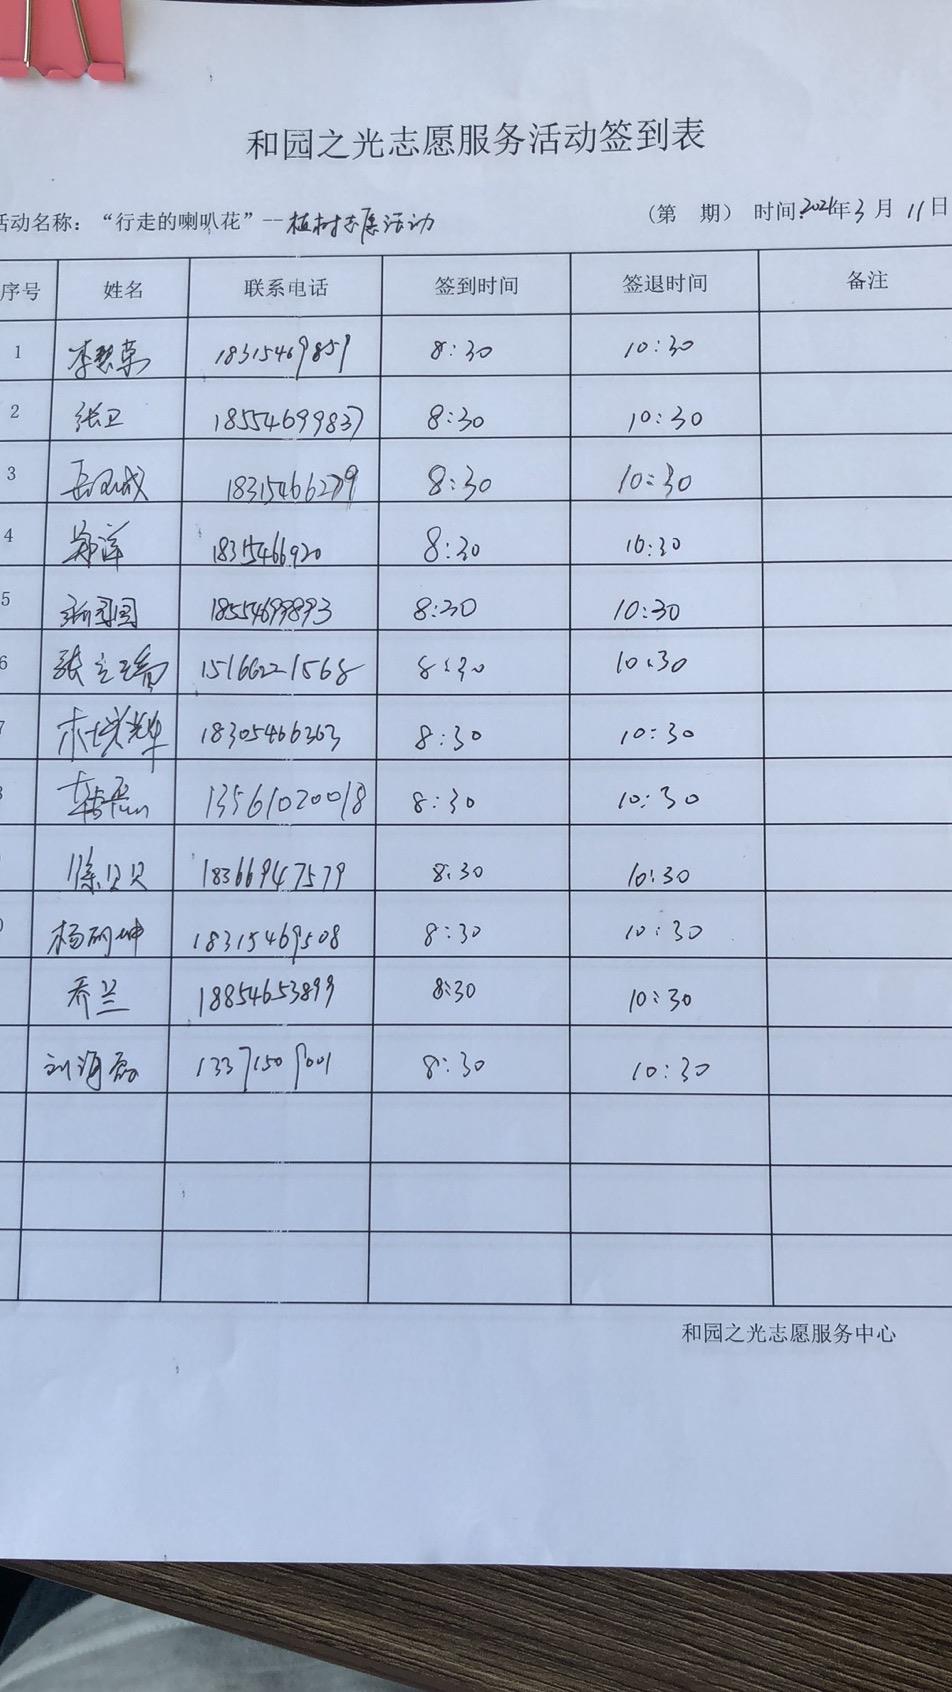 和园之光志愿服务活动签到表
活动名称：“行走的喇叭花”--植树志愿活动 （第 期） 时间:2021年3月11日
序号 姓名 联系电话 签到时间 签退时间 备注
1 18315469859 8:30 10:30
2 张卫 18554699837 8:30 10:30
3 18315466279 8:30 10:30
4 郑萍 18315466920 8:30 10:30
5 18554699893 8:30 10:30
6 张立瑞 15166221568 8:30 10:30
7 杜兴华 18305466363 8:30 10:30
韩磊 13561020018 8:30 10:30
滕贝贝 18366947579 8:30 10:30
杨丽坤 18315469508 8:30 10:30
乔兰 18854653899 8:30 10:30
刘海磊 13371509001 8:30 10:30
和园之光志愿服务中心